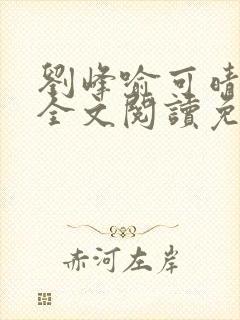 劉峰喻可晴
全文閱讀免
赤河左岸